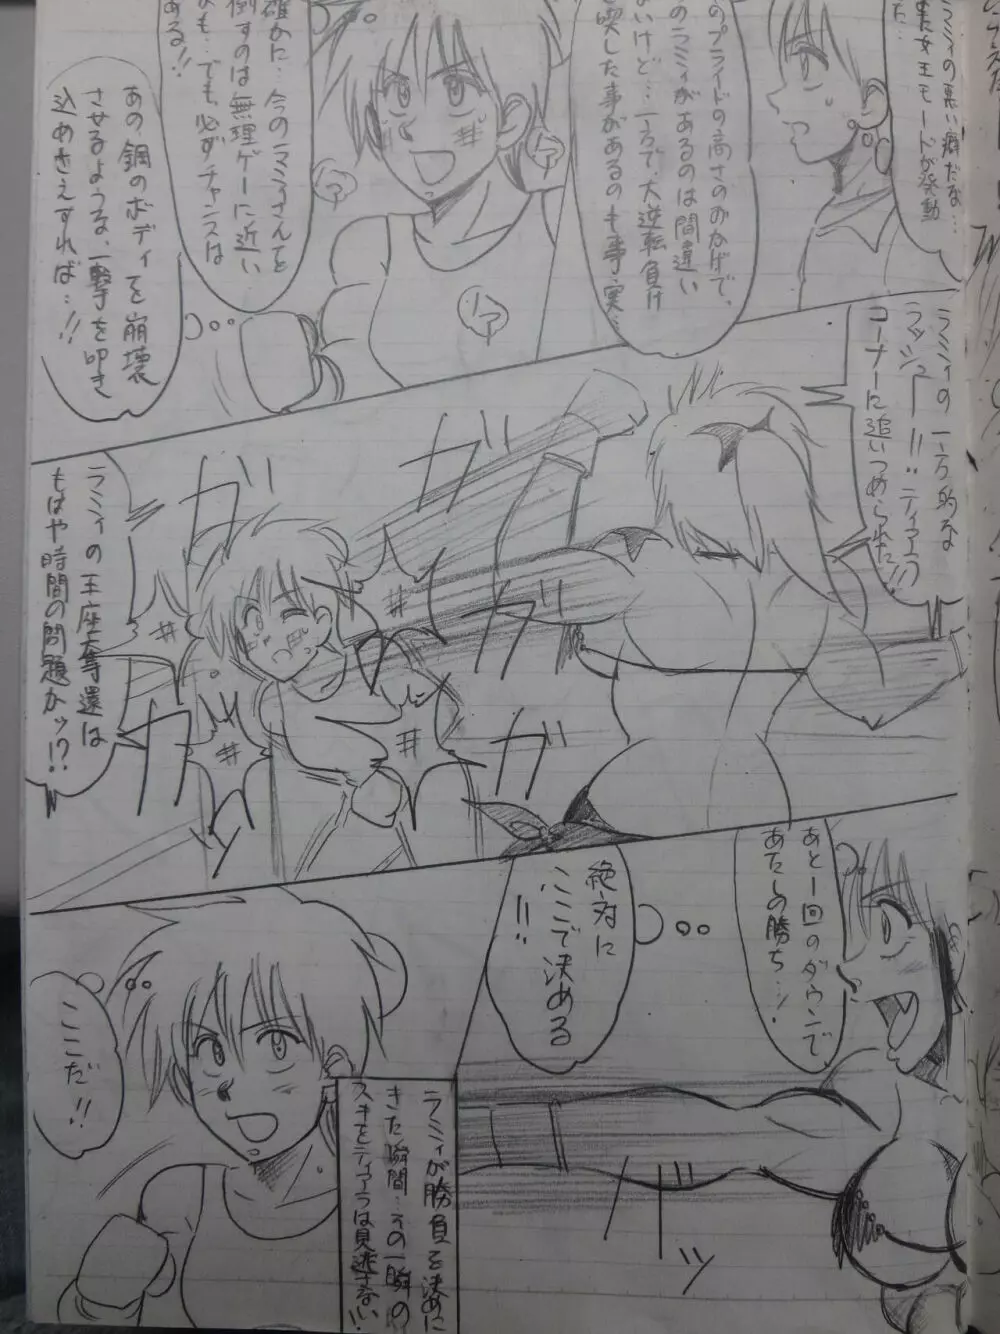 ラミィの悪い癖だな…
また女王モードが発動
た…
のプライドの高さのおかげで、
のラミィがあるのは間違い
ないけど…一方で、大逆転負け
を喫した事があるのも事実…
確かに…今のラミィさんを
倒すのは無理ゲーに近い
よも…でも、必ずチャンスは
ある!!
あの鋼のボディを崩壊
させるような、一撃を叩き
込めさえすれば…!!
ラミィの一方的な
ラッシュー!!ティアラ
コーナーに追いつめられた!!
ガ
ガ
ガ
ガ
ガ
ラミィの王座大奪還は
もはや時間の問題かッ!?
あと1回のダウンで
あたしの勝ち…!
絶対に
ここで決める
!!
バッ
ラミィが勝負を決めに
きた瞬間…その一瞬の
スキをティアラは見逃さない!!
ここだ!!